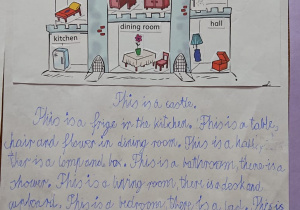 dining room
hall
kitchen
This is a castle.
This is a frige in the kitchen. This is a table,
chair and flower in dining room. This is a hall,
ther is a lamp and box. This is a bathroom, there is a
shower. This is a living room, ther is a desk and
cupboard. This is a bedroom there is a bed. This is